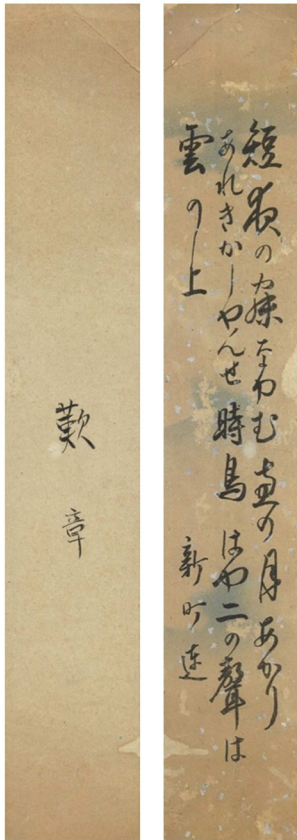 短夜の寐なやむ窓の月あかり
あれきかしやんせ時鳥はや二の聲は
雲の上
新町連
歎章